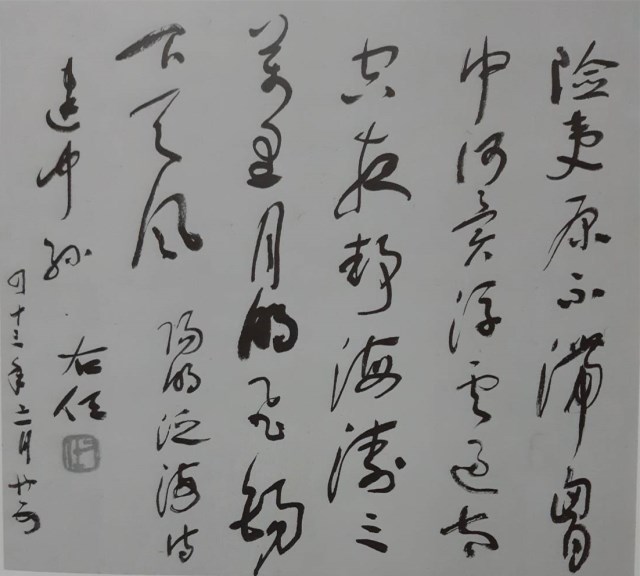 險夷原不滯胷
中何異浮雲過太
空夜靜海濤三
萬里月明飛錫
下天風
陽明泛海詩
建中孫
右任
四十三年